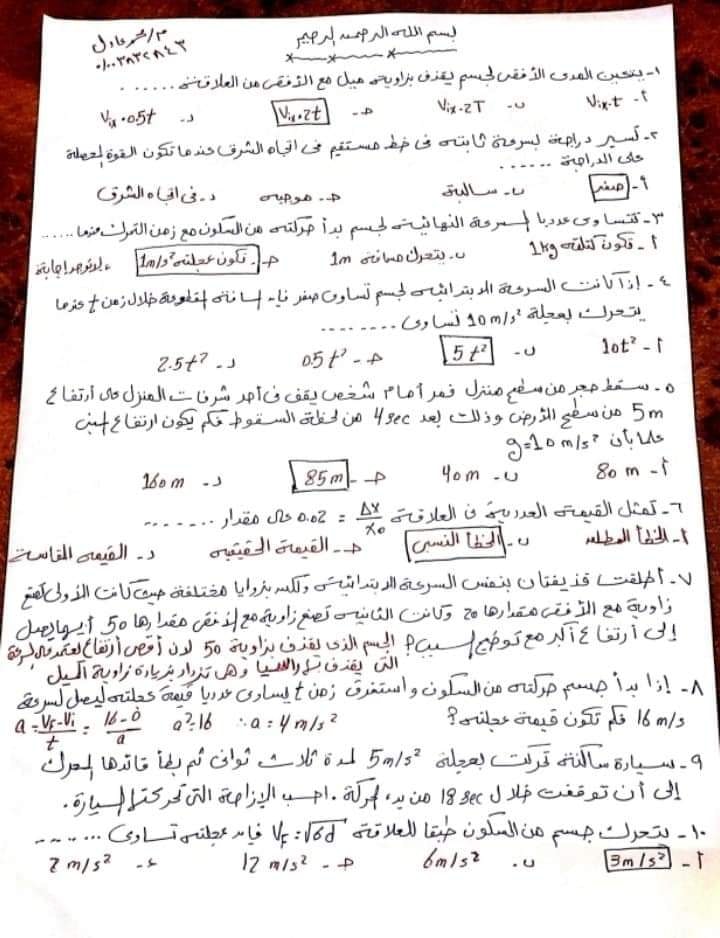 بسم الله الرحمن الرحيم
م/محمد عادل
٠١٠٠٣٨٣٢٨٤٣
١- يتعين المدى الأفقى لجسم يقذف بزاوية ميل مع الأفقى من العلاقة ......
أ- Vix·t ب- Vix·2T ج- Vix·2t د- Vix·0.5t
٢- تسير دراجة بسرعة ثابتة فى خط مستقيم فى اتجاه الشرق عندما تكون القوة المحصلة
على الدراجة ......
أ- صفر ب- سالبة ج- موجبة د- فى اتجاه الشرق
٣- تتساوى عدديا السرعة النهائية لجسم بدأ حركته من السكون مع زمن التحرك عندما ......
أ- تكون كتلته 1kg ب- يتحرك مسافة 1m ج- تكون عجلته 1m/s² د- لا توجد إجابة
٤- إذا كانت السرعة الابتدائية لجسم تساوى صفر فإن المسافة المقطوعة خلال زمن t عندما
يتحرك بعجلة 10m/s² تساوى ........
أ- 10t² ب- 5t² ج- 0.5t² د- 2.5t²
٥- سقط حجر من سطح منزل فمر أمام شخص يقف فى أحد شرفات المنزل على ارتفاع
5m من سطح الأرض وذلك بعد 4sec من لحظة السقوط فكم يكون ارتفاع المبنى
علما بأن g=10m/s²
أ- 80m ب- 40m ج- 85m د- 160m
٦- تمثل القيمة العددية فى العلاقة Δx/x₀ = 0.02 على مقدار .......
أ- الخطأ المطلق ب- الخطأ النسبى ج- القيمة الحقيقية د- القيمة المقاسة
٧- أطلقت قذيفتان بنفس السرعة الابتدائية ولكن بزوايا مختلفة حيث كانت الأولى تصنع
زاوية مع الأفقى مقدارها 20 وكانت الثانية تصنع زاوية مع الأفقى مقدارها 50 أيهما يصل
إلى ارتفاع أكبر مع توضيح السبب؟ الجسم الذى يقذف بزاوية 50 لأن أقصى ارتفاع يعتمد على السرعة
التى يقذف بها وهى تزداد بزيادة زاوية الميل
٨- إذا بدأ جسم حركته من السكون واستغرق زمن t يساوى عدديا قيمة عجلته ليصل لسرعة
16 m/s فكم تكون قيمة عجلته؟ ∴ a = 4m/s² a²=16 a = Vf-Vi/t = 16-0/a
٩- سيارة ساكنة تحركت بعجلة 5m/s² لمدة ثلاث ثوانى ثم بطأ قائدها المحرك
إلى أن توقفت خلال 18sec من بدء الحركة. احسب الإزاحة التى تحركتها السيارة.
١٠- يتحرك جسم من السكون طبقا للعلاقة Vf=√6d فإن عجلته تساوى ........
أ- 3m/s² ب- 6m/s² ج- 12m/s² د- 2m/s²